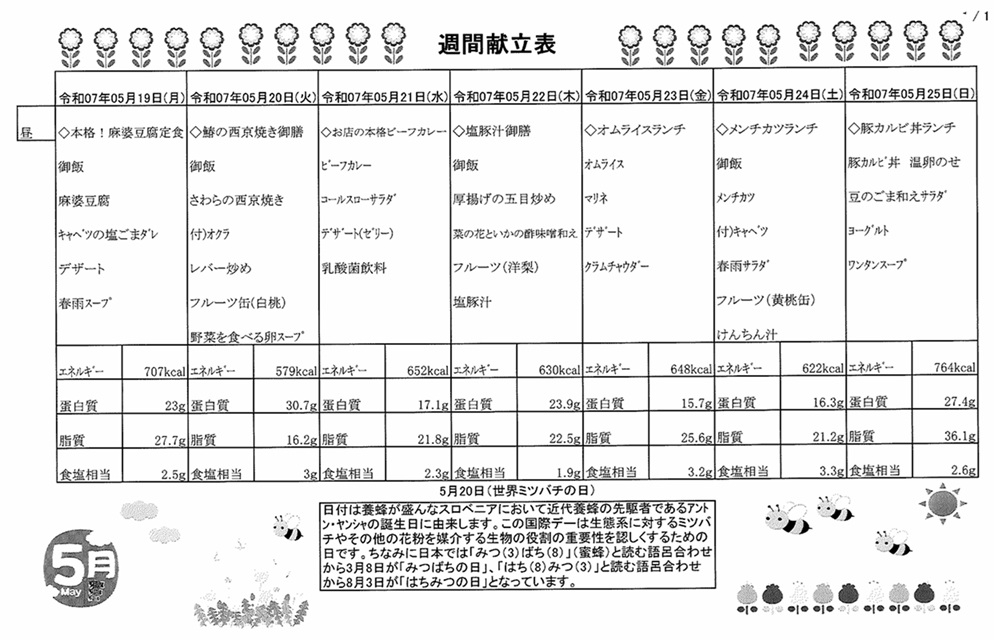 / 1
週間献立表
令和07年05月19日(月) 令和07年05月20日(火) 令和07年05月21日(水) 令和07年05月22日(木) 令和07年05月23日(金) 令和07年05月24日(土) 令和07年05月25日(日)
昼
◇本格！麻婆豆腐定食
御飯
麻婆豆腐
ｷｬﾍﾞﾂの塩ごまﾀﾞﾚ
デザート
春雨ｽｰﾌﾟ
◇鰆の西京焼き御膳
御飯
さわらの西京焼き
付)オクラ
レバー炒め
フルーツ缶(白桃)
野菜を食べる卵ｽｰﾌﾟ
◇お店の本格ビーフカレー
ﾋﾞｰﾌカレー
ｺｰﾙｽﾛｰｻﾗﾀﾞ
ﾃﾞｻﾞｰﾄ(ｾﾞﾘｰ)
乳酸菌飲料
◇塩豚汁御膳
御飯
厚揚げの五目炒め
菜の花といかの酢味噌和え
フルーツ(洋梨)
塩豚汁
◇オムライスランチ
ｵﾑﾗｲｽ
ﾏﾘﾈ
ﾃﾞｻﾞｰﾄ
ｸﾗﾑﾁｬｳﾀﾞｰ
◇メンチカツランチ
御飯
ﾒﾝﾁｶﾂ
付)ｷｬﾍﾞﾂ
春雨ｻﾗﾀﾞ
フルーツ(黄桃缶)
けんちん汁
◇豚カルビ丼ランチ
豚ｶﾙﾋﾞ丼　温卵のせ
豆のごま和えｻﾗﾀﾞ
ﾖｰｸﾞﾙﾄ
ﾜﾝﾀﾝｽｰﾌﾟ
ｴﾈﾙｷﾞｰ 707kcal ｴﾈﾙｷﾞｰ 579kcal ｴﾈﾙｷﾞｰ 652kcal ｴﾈﾙｷﾞｰ 630kcal ｴﾈﾙｷﾞｰ 648kcal ｴﾈﾙｷﾞｰ 622kcal ｴﾈﾙｷﾞｰ 764kcal
蛋白質 23g 蛋白質 30.7g 蛋白質 17.1g 蛋白質 23.9g 蛋白質 15.7g 蛋白質 16.3g 蛋白質 27.4g
脂質 27.7g 脂質 16.2g 脂質 21.8g 脂質 22.5g 脂質 25.6g 脂質 21.2g 脂質 36.1g
食塩相当 2.5g 食塩相当 3g 食塩相当 2.3g 食塩相当 1.9g 食塩相当 3.2g 食塩相当 3.3g 食塩相当 2.6g
5月20日(世界ミツバチの日)
日付は養蜂が盛んなスロベニアにおいて近代養蜂の先駆者であるアント
ン・ヤンシャの誕生日に由来します。この国際デーは生態系に対するミツバ
チやその他の花粉を媒介する生物の役割の重要性を認しくするための
日です。ちなみに日本では「みつ(3)ばち(8)」(蜜蜂)と読む語呂合わせ
から3月8日が「みつばちの日」、「はち(8)みつ(3)」と読む語呂合わせ
から8月3日が「はちみつの日」となっています。
5月
May